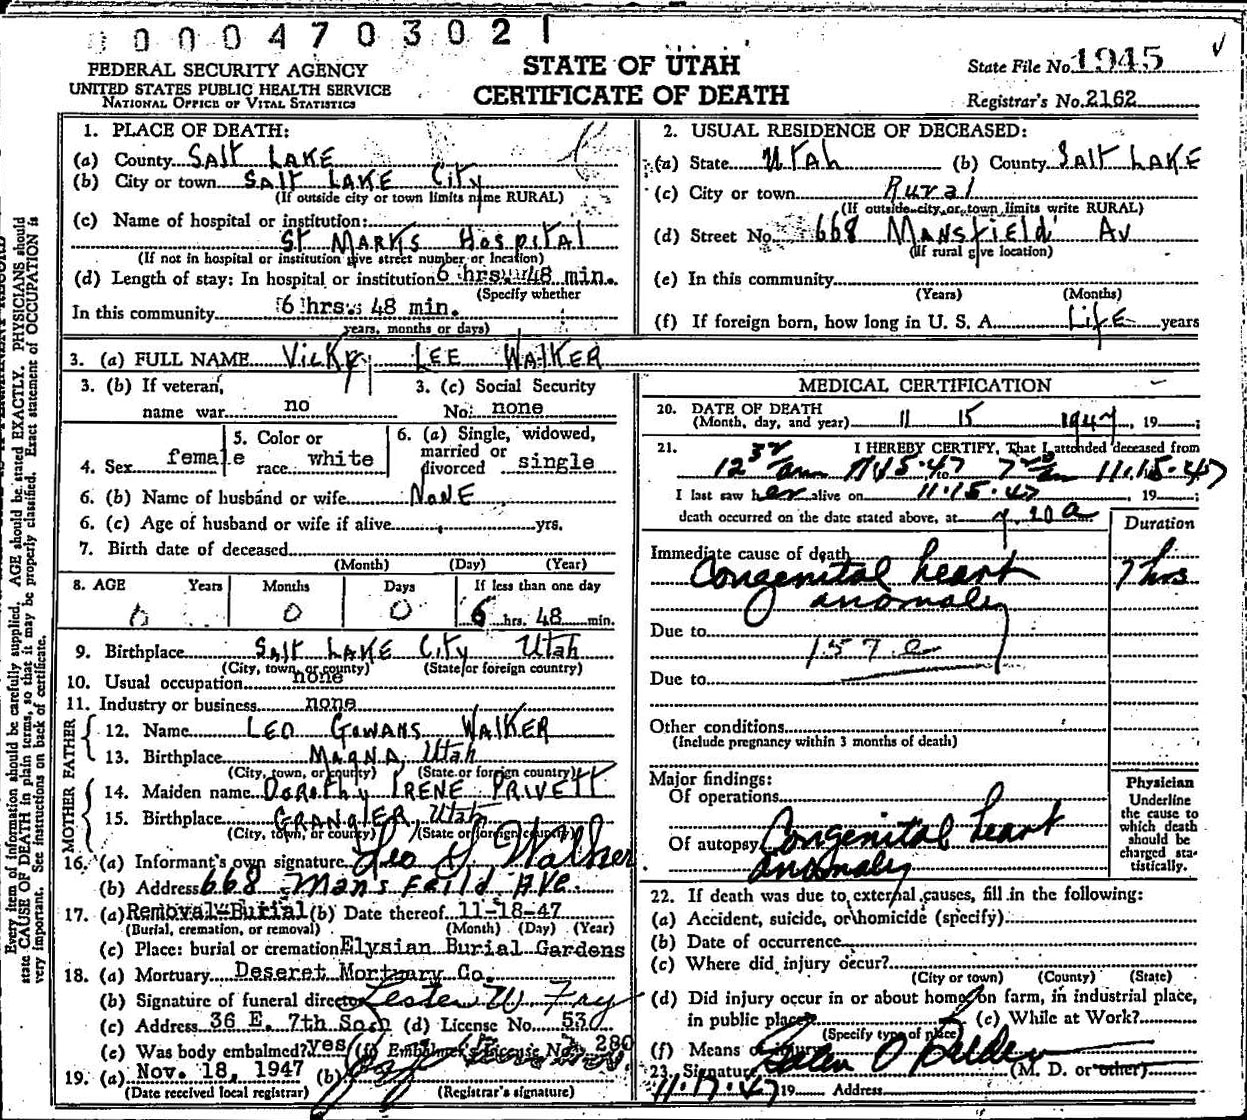 0000470302
STATE OF UTAH
CERTIFICATE OF DEATH
FEDERAL SECURITY AGENCY
UNITED STATES PUBLIC HEALTH SERVICE
NATIONAL OFFICE OF VITAL STATISTICS
State File No. 1945
Registrar's No. 2162
1. PLACE OF DEATH:
(a) County SALT LAKE
(b) City or town SALT LAKE CITY
(If outside city or town limits name RURAL)
(c) Name of hospital or institution:
ST MARKS HOSPITAL
(If not in hospital or institution give street number or location)
(d) Length of stay: In hospital or institution 6 hrs. 48 min.
(Specify whether
In this community 6 hrs. 48 min.
years, months or days)
2. USUAL RESIDENCE OF DECEASED:
(a) State UTAH (b) County SALT LAKE
(c) City or town Rural
(If outside city or town limits write RURAL)
(d) Street No. 668 MANSFIELD AV
(If rural give location)
(e) In this community
(Years) (Months)
(f) If foreign born, how long in U. S. A. LIFE years
3. (a) FULL NAME VICKY LEE WALKER
3. (b) If veteran, name war no
3. (c) Social Security No. none
4. Sex female
5. Color or race white
6. (a) Single, widowed, married or divorced single
6. (b) Name of husband or wife NONE
6. (c) Age of husband or wife if alive yrs.
7. Birth date of deceased
(Month) (Day) (Year)
8. AGE Years Months Days If less than one day
0 0 0 6 hrs. 48 min.
9. Birthplace SALT LAKE CITY Utah
(City, town, or county) (State or foreign country)
10. Usual occupation none
11. Industry or business none
FATHER
12. Name LEO GOWANS WALKER
13. Birthplace MAGNA, Utah
(City, town, or county) (State or foreign country)
MOTHER
14. Maiden name DOROTHY IRENE PRIVETT
15. Birthplace GRANGER, Utah
(City, town, or county) (State or foreign country)
16. (a) Informant's own signature Leo G Walker
(b) Address 668 Mansfeild Ave.
17. (a) Removal-Burial (b) Date thereof 11-18-47
(Burial, cremation, or removal) (Month) (Day) (Year)
(c) Place: burial or cremation Elysian Burial Gardens
18. (a) Mortuary Deseret Mortuary Co.
(b) Signature of funeral director Lester W Fry
(c) Address 36 E. 7th South (d) License No. 530
(e) Was body embalmed? yes (f) Embalmer's License No. 280
19. (a) Nov. 18, 1947 (b)
(Date received local registrar) (Registrar's signature)
MEDICAL CERTIFICATION
20. DATE OF DEATH 11 15 1947, 19
(Month, day, and year)
21. I HEREBY CERTIFY, That I attended deceased from
11·15·47 to 11·15·47
I last saw her alive on 11·15·47, 19
death occurred on the date stated above, at 7.20 a
Duration
Immediate cause of death
Congenital heart 7 hrs
anomaly
Due to 157e
Due to
Other conditions
(Include pregnancy within 3 months of death)
Major findings:
Of operations
Of autopsy Congenital heart
anomaly
Physician
Underline the cause to which death should be charged statistically.
22. If death was due to external causes, fill in the following:
(a) Accident, suicide, or homicide (specify)
(b) Date of occurrence
(c) Where did injury occur?
(City or town) (County) (State)
(d) Did injury occur in or about home, on farm, in industrial place,
in public place? (e) While at Work?
(Specify type of place)
(f) Means of injury
23. Signature (M. D. or other)
11·17·47 19 Address
Every item of information should be carefully supplied. AGE should be stated EXACTLY. PHYSICIANS should
state CAUSE OF DEATH in plain terms, so that it may be properly classified. Exact statement of OCCUPATION is
very important. See instructions on back of certificate.